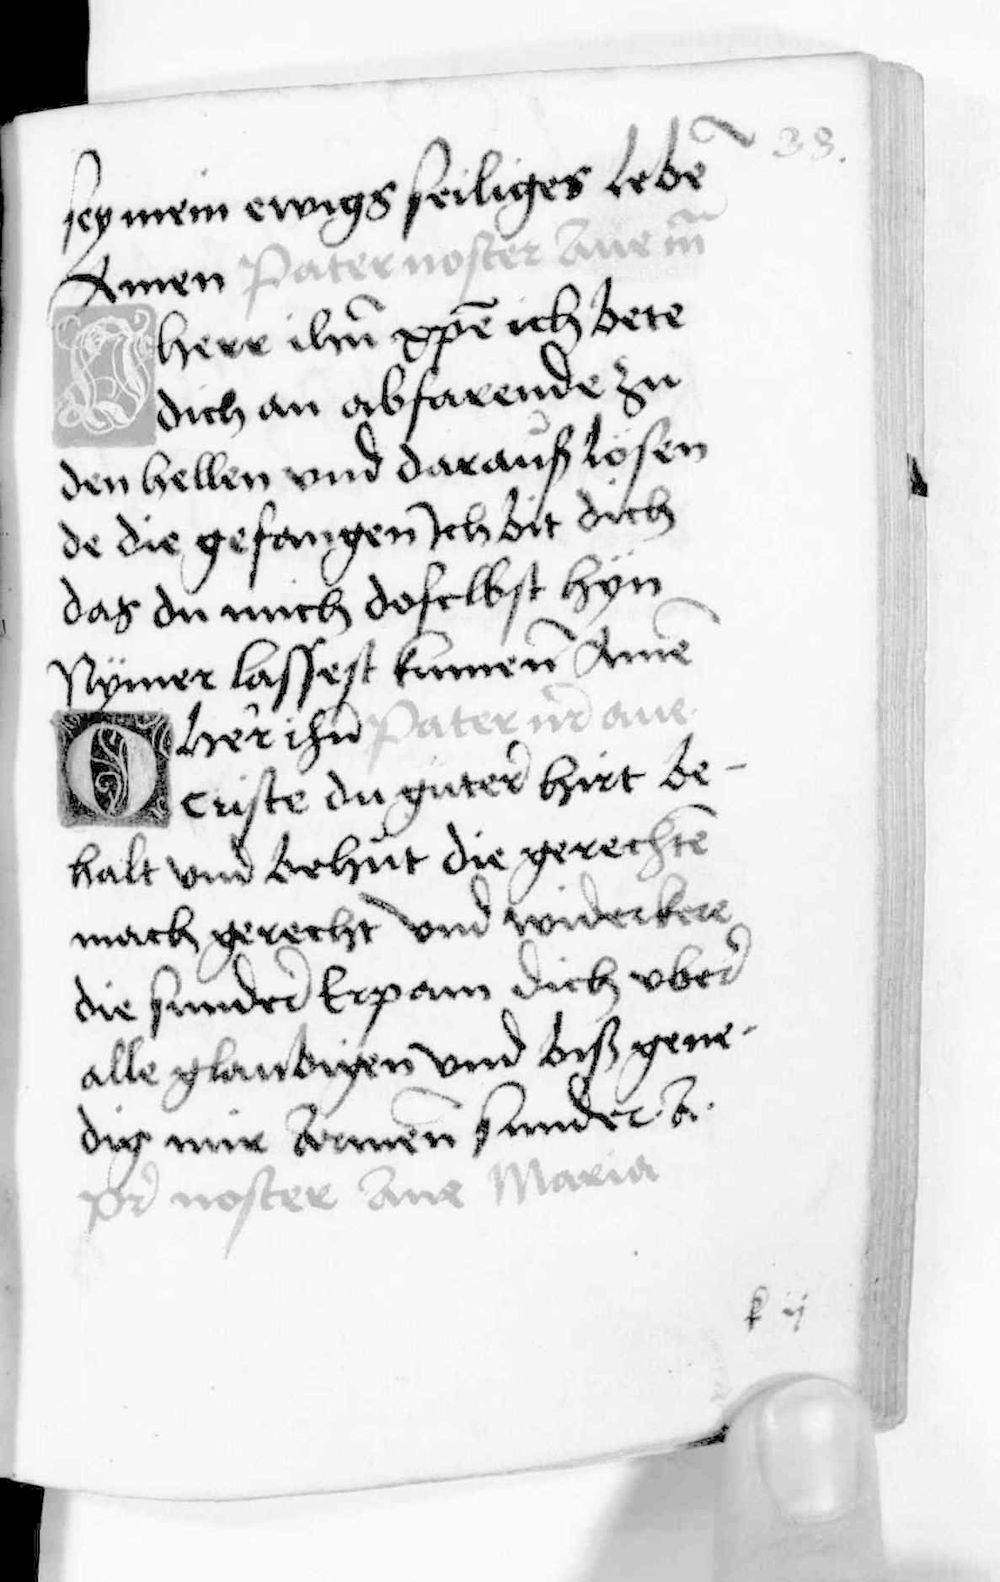 38.
sey mein ewigs seiliges lebē
Amen Pater noster Aue m̄
O herr ihū xp̄e ich bete
dich an abfarende zu
den hellen vnd darauß lösen
de die gefangen Ich bit dich
das du mich doselbst hÿn
Nÿmer lassest kumen̄ Amē
O her̄ ihū Pater nr̄ aue
criste du guter hirt be-
halt vnd behut die gerechtē
mach gerecht vnd widerkere
die sunder Erparm dich vber
alle glaubigen vnd biß gene-
dig mir Armen̄ sunder. A.
Pr̄ noster Aue Maria
k ij